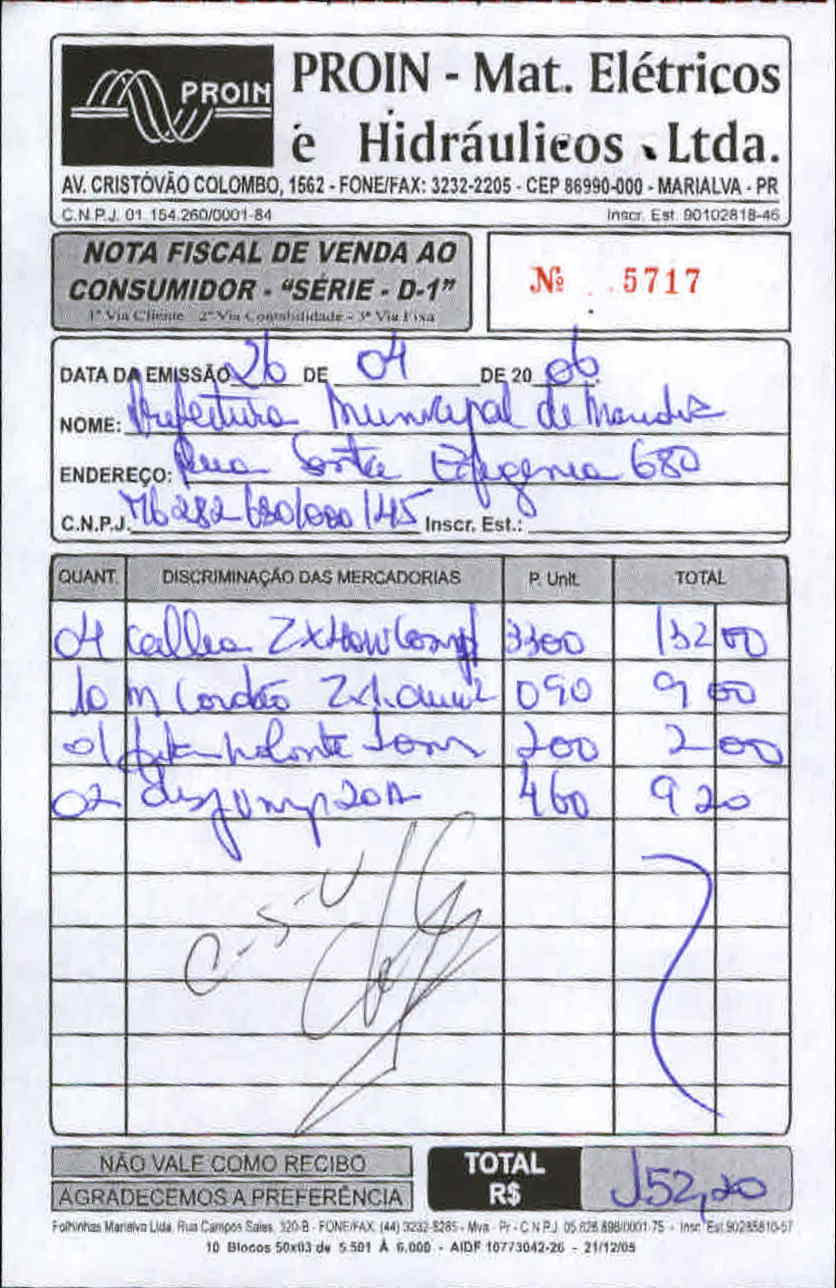 PROIN
PROIN - Mat. Elétricos
e Hidráulicos Ltda.
AV. CRISTÓVÃO COLOMBO, 1562 - FONE/FAX: 3232-2205 - CEP 86990-000 - MARIALVA - PR
C.N.P.J. 01.154.260/0001-84 Inscr. Est. 90102818-46
NOTA FISCAL DE VENDA AO
CONSUMIDOR - "SÉRIE - D-1"
1ª Via Cliente - 2ª Via Contabilidade - 3ª Via Fixa
Nº 5717
DATA DA EMISSÃO 26 DE 04 DE 20 06
NOME: Prefeitura Municipal de
ENDEREÇO: Rua Santa Efigenia 680
C.N.P.J. 76282 Inscr. Est.:
QUANT. DISCRIMINAÇÃO DAS MERCADORIAS P. Unit. TOTAL
04 3300 132 00
10 m Cordão 090 9 00
01 fita 200 2 00
02 460 9 20
C-S-U
NÃO VALE COMO RECIBO
AGRADECEMOS A PREFERÊNCIA
TOTAL
R$ 152,20
Folhinhas Marialva Ltda. Rua Campos Sales, 320-B - FONE/FAX (44) 3232-5285 - Mva - Pr - C.N.P.J.
10 Blocos 50x03 de 5.501 Á 6.000 - AIDF 10773042-26 - 21/12/05